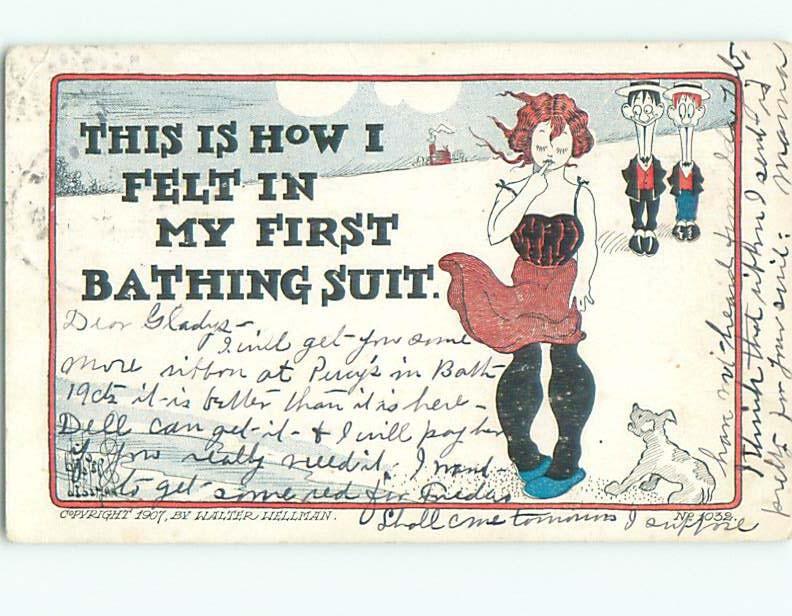 THIS IS HOW I
FELT IN
MY FIRST
BATHING SUIT.
Dear Gladys-
I will get you some
more ribbon at Percy's in Bath
19cts it is better than it is here -
Dell can get it & I will pay her
if you really need it. I want
to get some red for Fredas
Shall come tomorrow I suppose
have not heard from
I think that ribbon I sent is
pretty for your suit. Mama
COPYRIGHT 1907, BY WALTER WELLMAN.
No 1032.